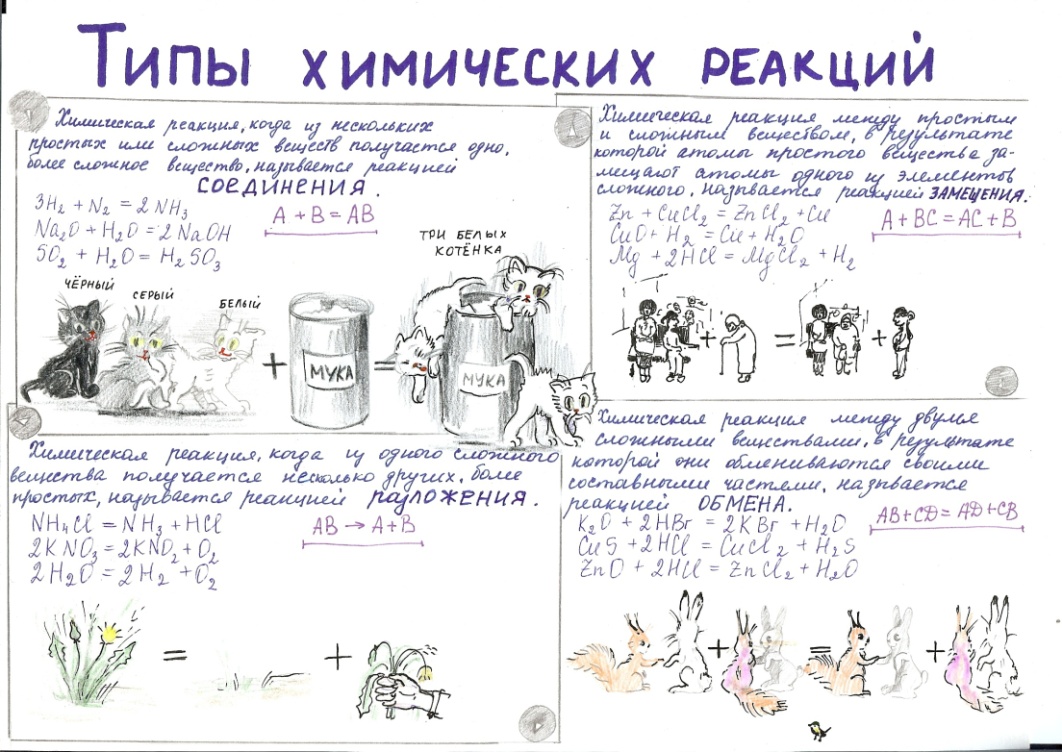 Типы химических реакций
Химическая реакция, когда из нескольких
простых или сложных веществ получается одно,
более сложное вещество, называется реакцией
СОЕДИНЕНИЯ.
3H₂ + N₂ = 2NH₃
Na₂O + H₂O = 2NaOH
SO₂ + H₂O = H₂SO₃
A + B = AB
ЧЁРНЫЙ
СЕРЫЙ
БЕЛЫЙ
+
МУКА
=
ТРИ БЕЛЫХ
КОТЁНКА
МУКА
Химическая реакция между простым
и сложным веществом, в результате
которой атомы простого вещества за-
мещают атомы одного из элементов
сложного, называется реакцией ЗАМЕЩЕНИЯ.
Zn + CuCl₂ = ZnCl₂ + Cu
CuO + H₂ = Cu + H₂O
Mg + 2HCl = MgCl₂ + H₂
A + BC = AC + B
+ = +
Химическая реакция, когда из одного сложного
вещества получается несколько других, более
простых, называется реакцией РАЗЛОЖЕНИЯ.
NH₄Cl = NH₃ + HCl
2KNO₃ = 2KNO₂ + O₂
2H₂O = 2H₂ + O₂
AB → A + B
= +
Химическая реакция между двумя
сложными веществами, в результате
которой они обмениваются своими
составными частями, называется
реакцией ОБМЕНА.
K₂O + 2HBr = 2KBr + H₂O
CuS + 2HCl = CuCl₂ + H₂S
ZnO + 2HCl = ZnCl₂ + H₂O
AB + CD = AD + CB
+ = +